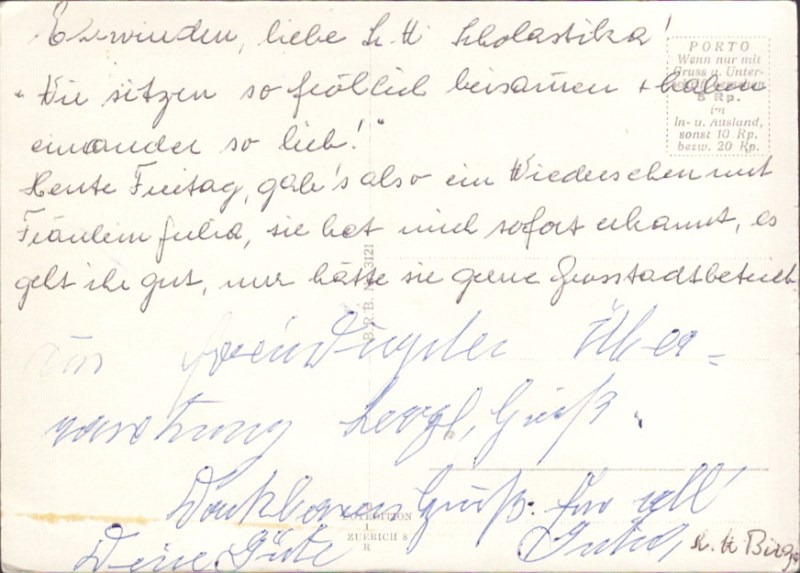 Ezwinden, liebe h. H Scholastika!
"Wir sitzen so fröhlich beisamen + haben
einander so lieb!"
Heute Freitag, gab's also ein Wiedersehen mit
Fräulein Julia, sie hat mich sofort erkannt, es
geht ihr gut, nur hätte sie gerne Grosstadtbetrieb.
PORTO
Wenn nur mit
Gruss u. Unter-
5 Rp.
im
In- u. Ausland,
sonst 10 Rp.
bezw. 20 Rp.
B.R.B. 3121
aus freudigster Über-
raschung herzl. Gruß.
Dankbaren Gruß. für all'
Deine Güte Julia,
EDITION
ZUERICH 8